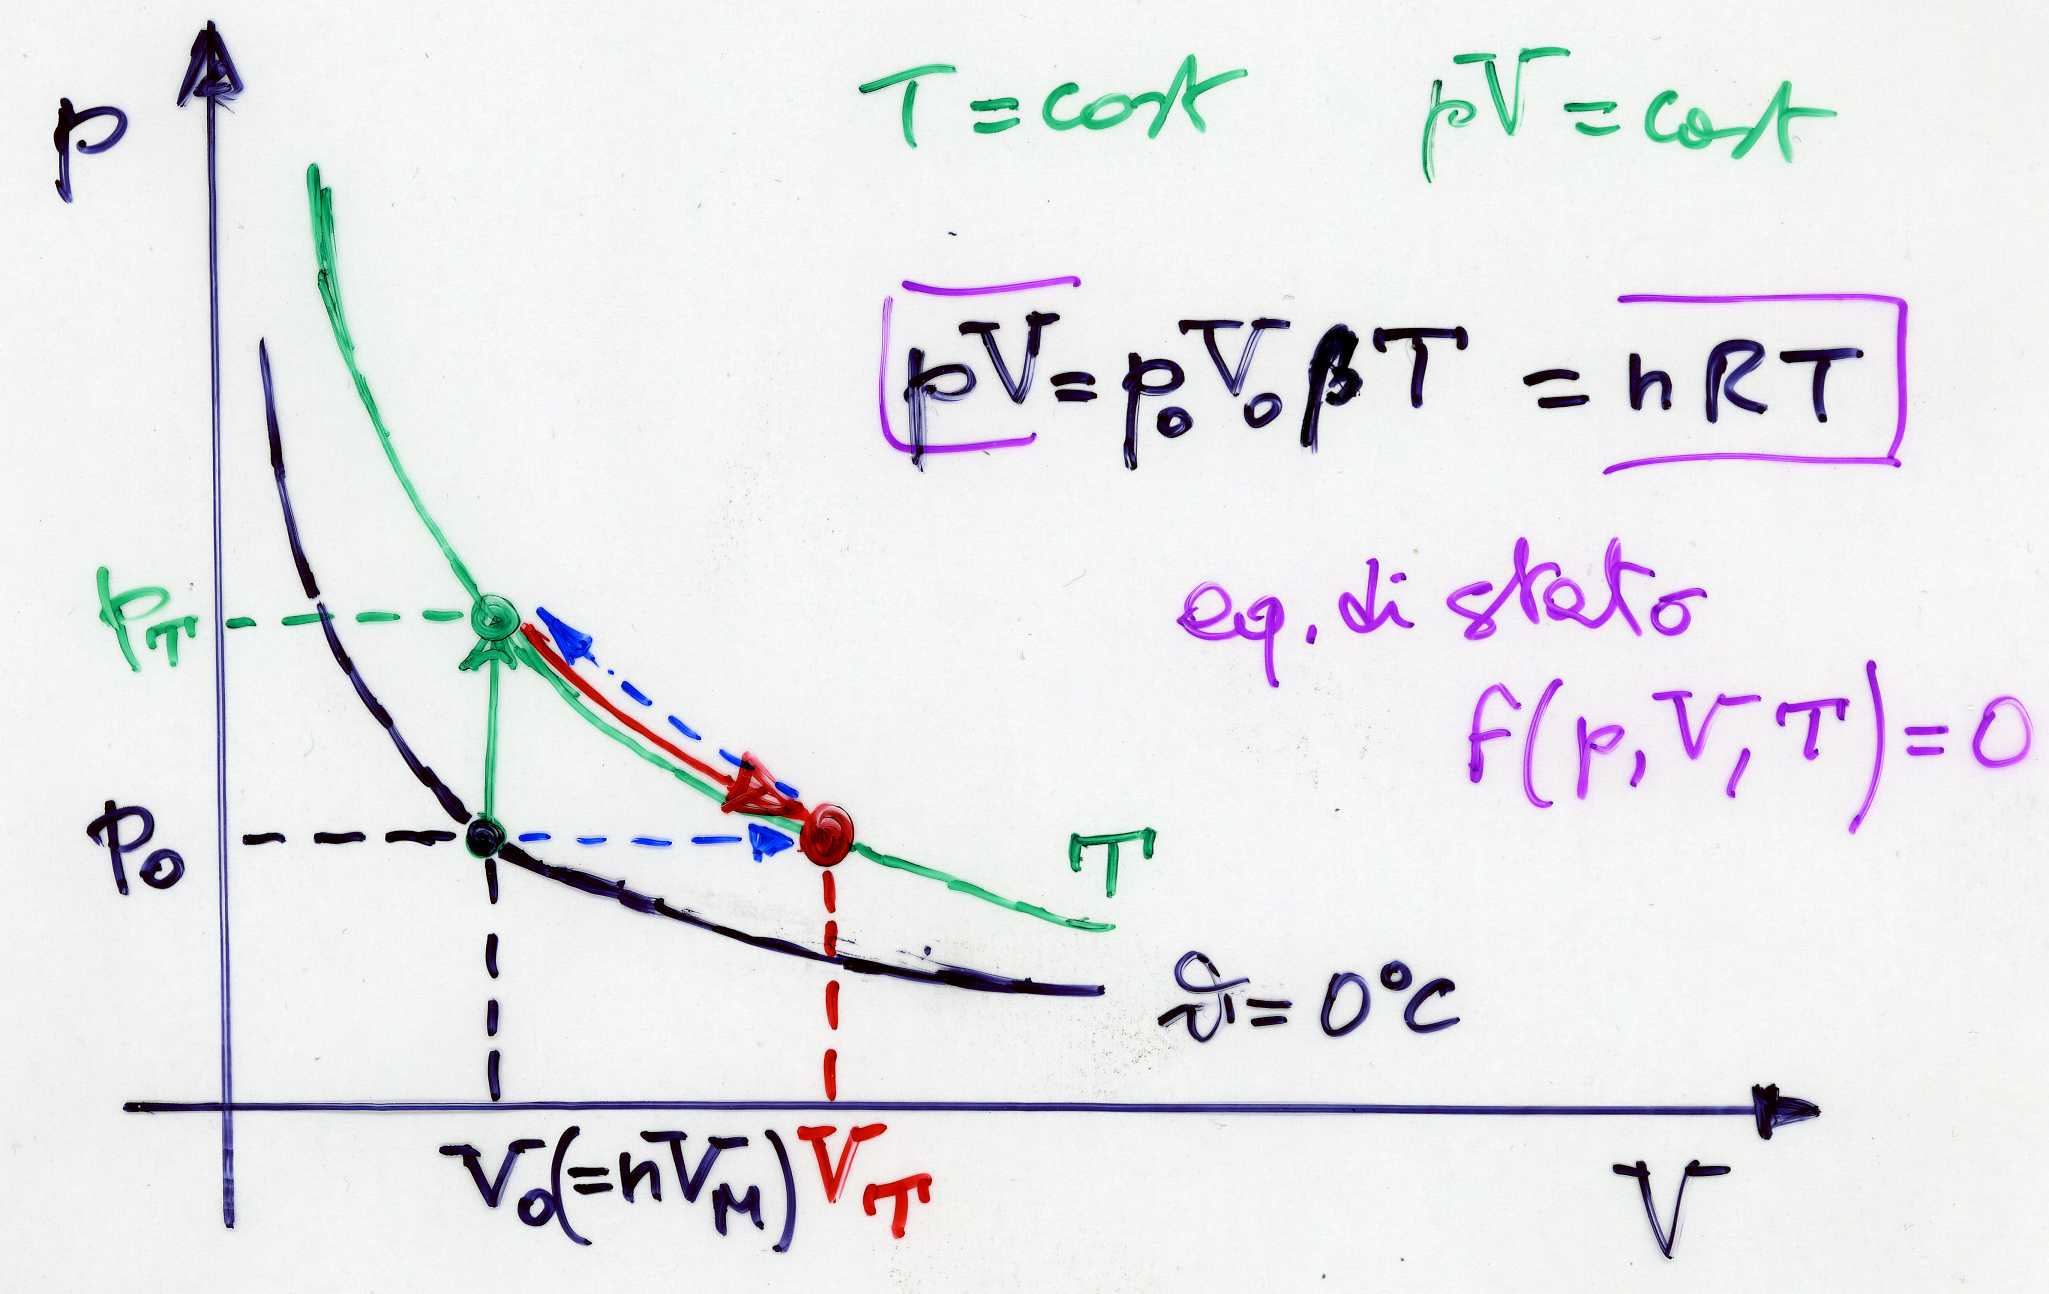 p
T = cost pV = cost
pV = p₀V₀βT = nRT
eq. di stato
f(p, V, T) = 0
p_T
p₀
T
ϑ = 0°C
V₀(=nV_M) V_T
V